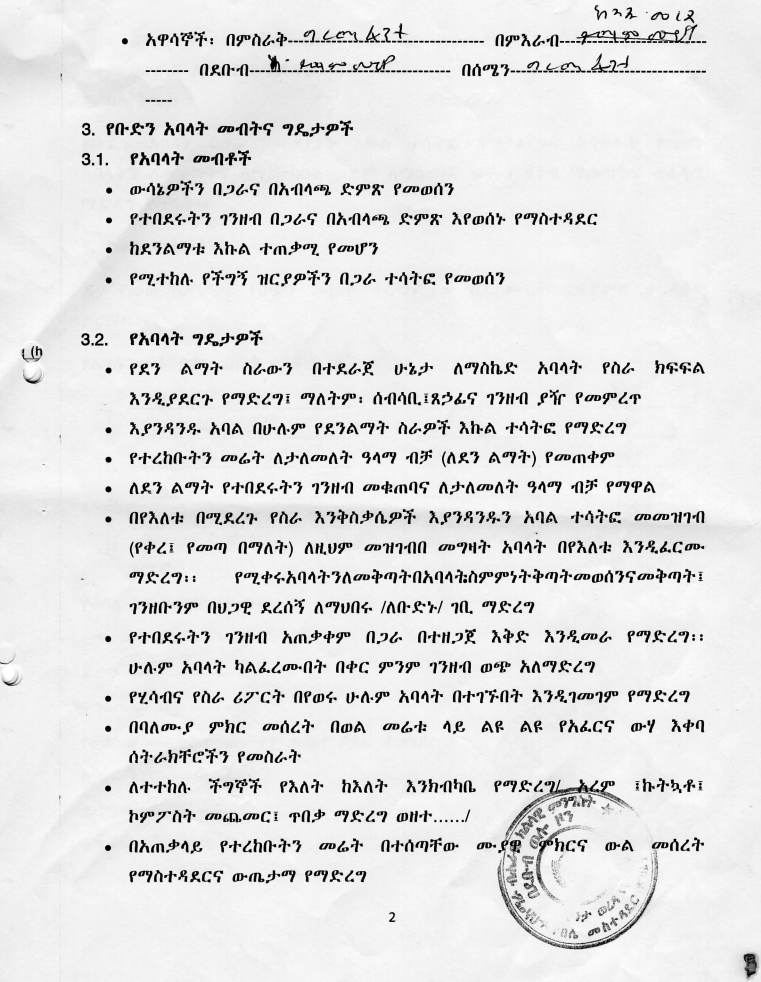 • አዋሳኞች፡ በምስራቅ በምእራብ
በደቡብ በሰሜን
3. የቡድን አባላት መብትና ግዴታዎች
3.1. የአባላት መብቶች
• ውሳኔዎችን በጋራና በአብላጫ ድምጽ የመወሰን
• የተበደሩትን ገንዘብ በጋራና በአብላጫ ድምጽ እየወሰኑ የማስተዳደር
• ከደንልማቱ እኩል ተጠቃሚ የመሆን
• የሚተከሉ የችግኝ ዝርያዎችን በጋራ ተሳትፎ የመወሰን
3.2. የአባላት ግዴታዎች
• የደን ልማት ስራውን በተደራጀ ሁኔታ ለማስኬድ አባላት የስራ ክፍፍል
እንዲያደርጉ የማድረግ፤ ማለትም፡ ሰብሳቢ፤ጸኃፊና ገንዘብ ያዥ የመምረጥ
• እያንዳንዱ አባል በሁሉም የደንልማት ስራዎች እኩል ተሳትፎ የማድረግ
• የተረከቡትን መሬት ለታለመለት ዓላማ ብቻ (ለደን ልማት) የመጠቀም
• ለደን ልማት የተበደሩትን ገንዘብ መቁጠባና ለታለመለት ዓላማ ብቻ የማዋል
• በየእለቱ በሚደረጉ የስራ እንቅስቃሴዎች እያንዳንዱን አባል ተሳትፎ መመዝገብ
(የቀረ፤ የመጣ በማለት) ለዚህም መዝገብበ መግዛት አባላት በየእለቱ እንዲፈርሙ
ማድረግ፡፡ የሚቀሩአባላትንለመቅጣትበአባላቱስምምነትቅጣትመወሰንናመቅጣት፤
ገንዘቡንም በህጋዊ ደረሰኝ ለማህበሩ /ለቡድኑ/ ገቢ ማድረግ
• የተበደሩትን ገንዘብ አጠቃቀም በጋራ በተዘጋጀ እቅድ እንዲመራ የማድረግ፡፡
ሁሉም አባላት ካልፈረሙበት በቀር ምንም ገንዘብ ወጭ አለማድረግ
• የሂሳብና የስራ ሪፖርት በየወሩ ሁሉም አባላት በተገኙበት እንዲገመገም የማድረግ
• በባለሙያ ምክር መሰረት በወል መሬቱ ላይ ልዩ ልዩ የአፈርና ውሃ እቀባ
ሰትራክቸሮችን የመስራት
• ለተተከሉ ችግኞች የእለት ከእለት እንክብካቤ የማድረግ/ አረም ፤ኩትኳቶ፤
ኮምፖስት መጨመር፤ ጥበቃ ማድረግ ወዘተ....../
• በአጠቃላይ የተረከቡትን መሬት በተሰጣቸው ሙያዊ ምክርና ውል መሰረት
የማስተዳደርና ውጤታማ የማድረግ
2